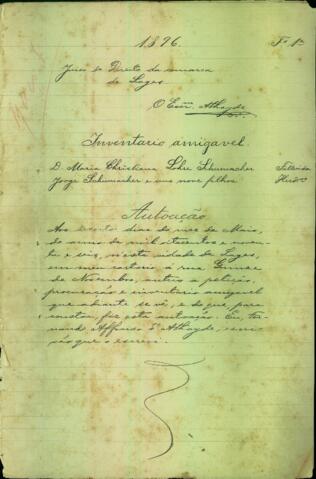 1896. Fs 1
Juizo de Direito da comarca
de Lages
O Escr. Athayde
Inventario amigavel.
D. Maria Christiana Lohre Schumacher Fallecida
Jorge Schumacher e seus nove filhos Herdos
Autoação
Aos oito dias do mez de Maio,
do anno de mil oitocentos e noven-
ta e seis, nesta cidade de Lages,
em meu cartorio a rua Quinze
de Novembro, autuo a petição,
procuração e inventario amigavel
que adiante se vê, e do que, para
constar, fiz esta autoação. Eu, Fer-
nando Affonso d'Athayde, escri-
vão que o escrevi.